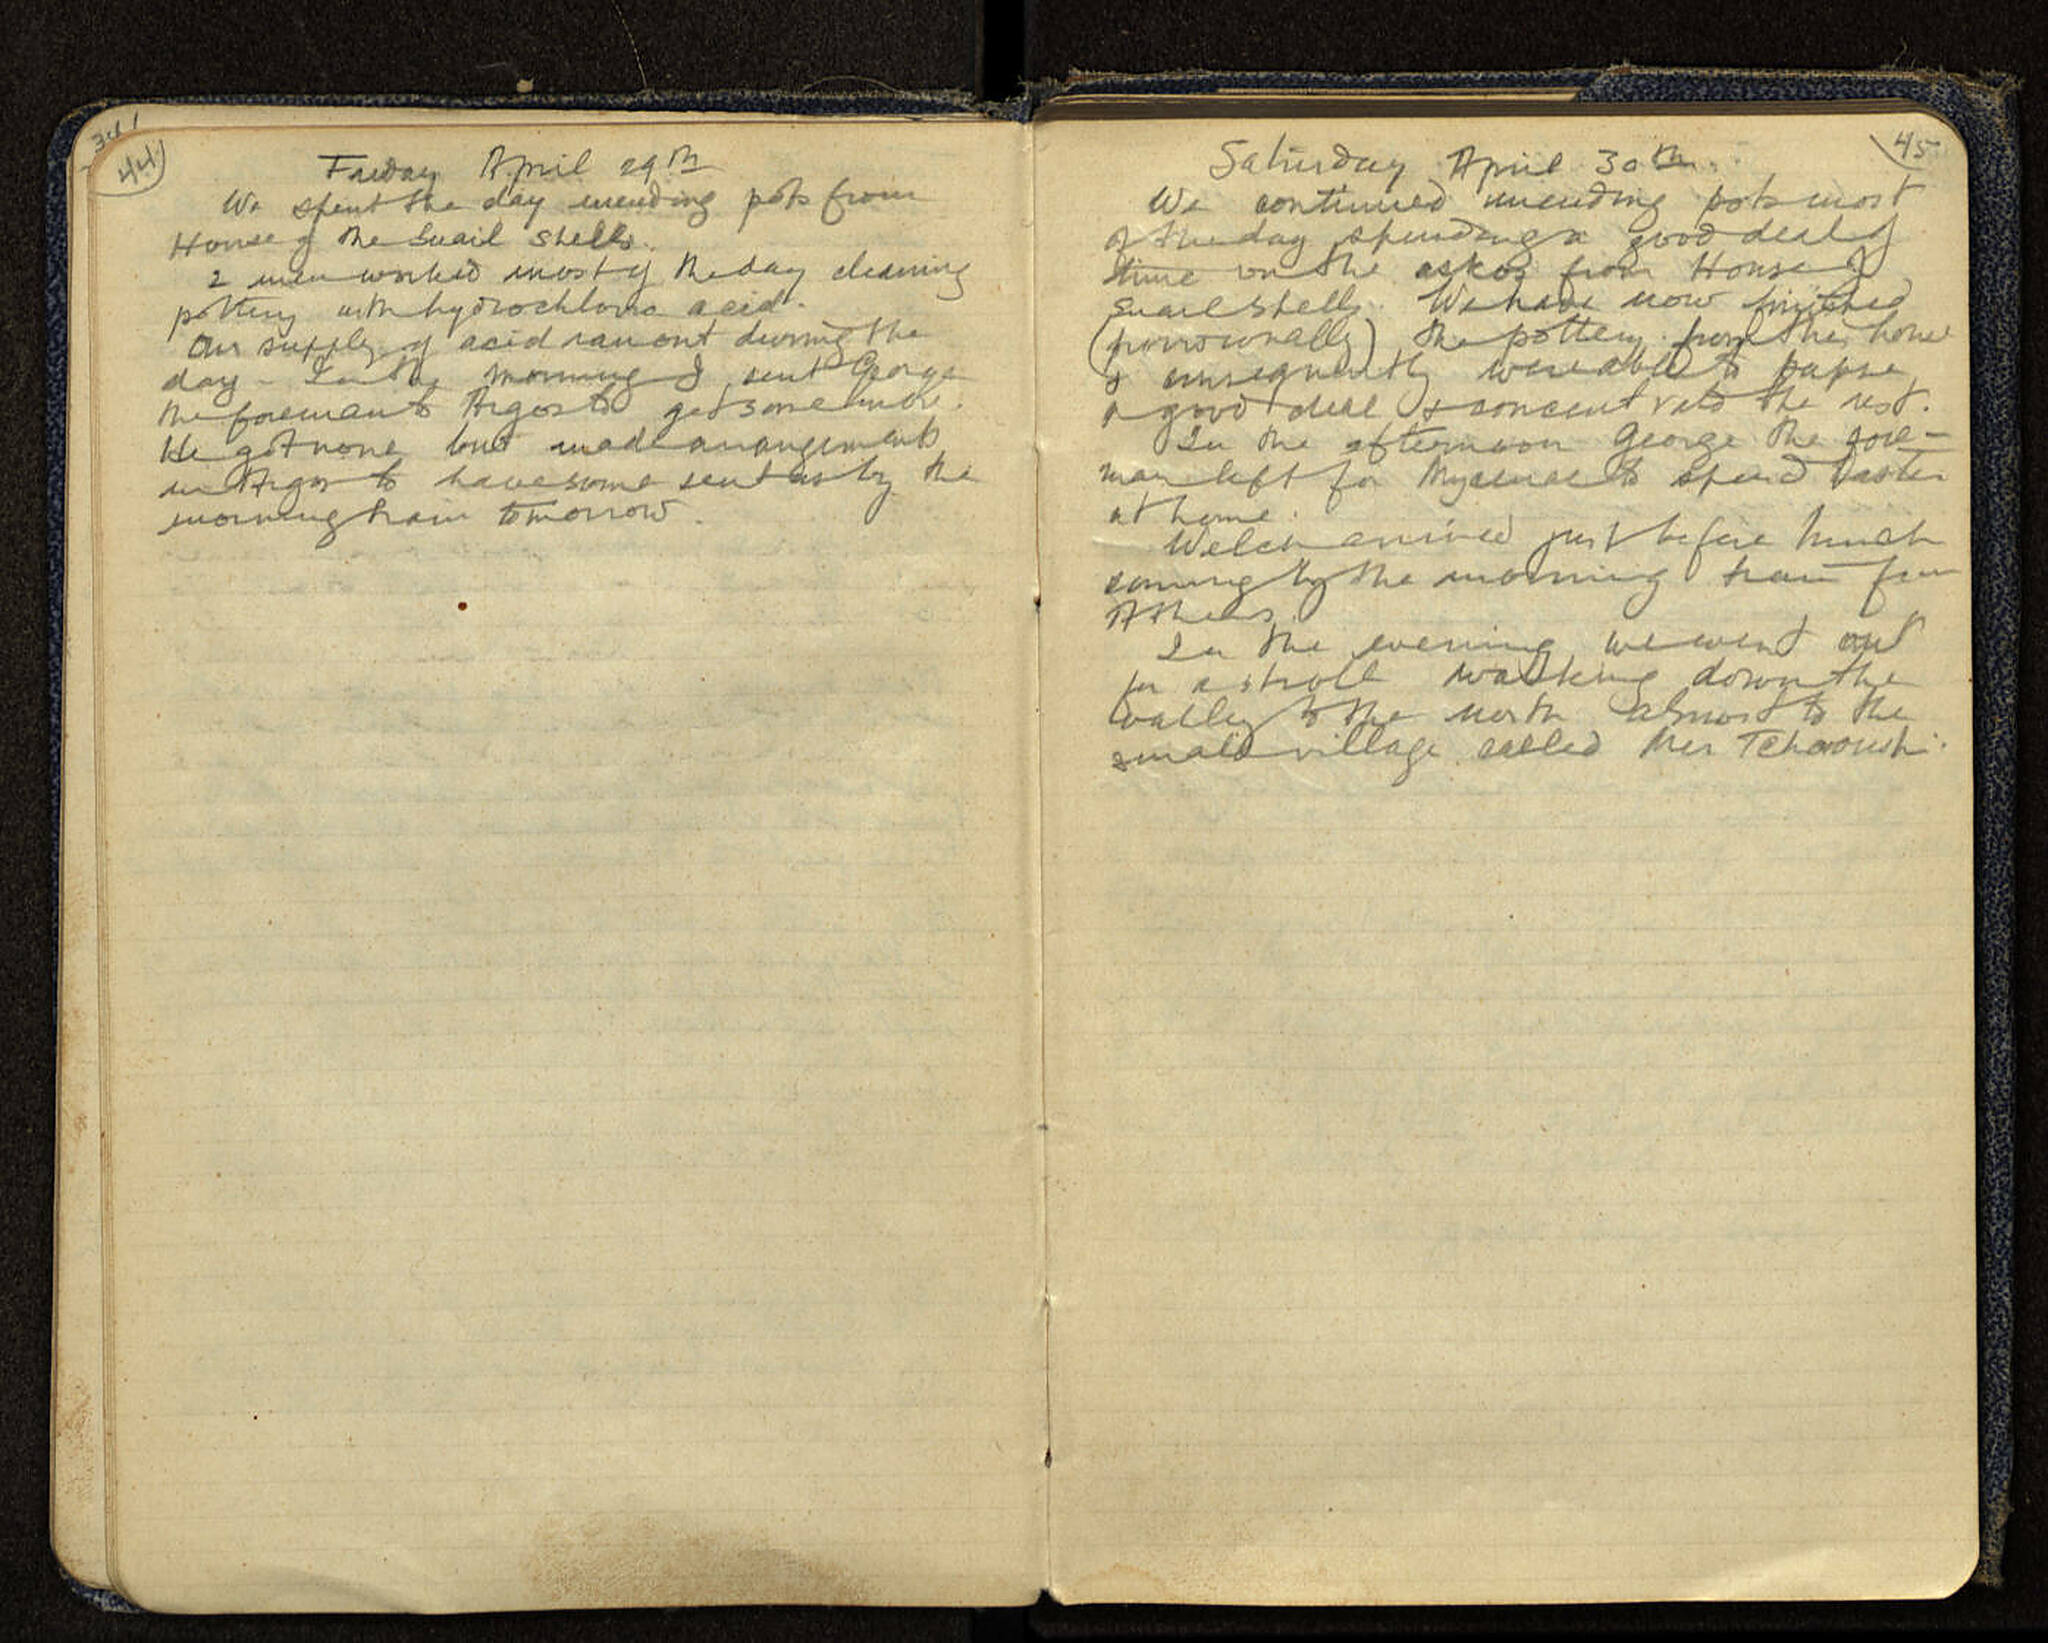 44
Friday April 29th
We spent the day mending pots from
House of the Snail Shells.
2 men worked most of the day cleaning
pottery with hydrochloric acid.
Our supply of acid ran out during the
day - In the morning I sent George
the foreman to Argos to get some more.
He got none but made arrangements
in Argos to have some sent us by the
morning train tomorrow.
45
Saturday April 30th.
We continued mending pots most
of the day spending a good deal of
time on the askos from House of
Snail Shells. We have now finished
(provisionally) the pottery from the house
& consequently were able to papse
a good deal & concentrate the rest.
In the afternoon George the fore-
man left for Mycenae to spend Easter
at home.
Welch arrived just before lunch
coming by the morning train from
Athens.
In the evening we went out
for a stroll walking down the
valley to the north almost to the
small village called Mer Tchaoushi.